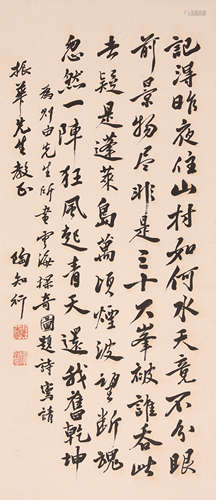 記得昨夜住山村如何水天竟不分眼
前景物尽非是三十六峯被誰吞此
去疑是蓬萊島萬頃煙波望斷魂
忽然一陣狂風起青天還我舊乾坤
為則由先生所畫雲海探奇圖題詩寫請
振華先生教正
陶知行